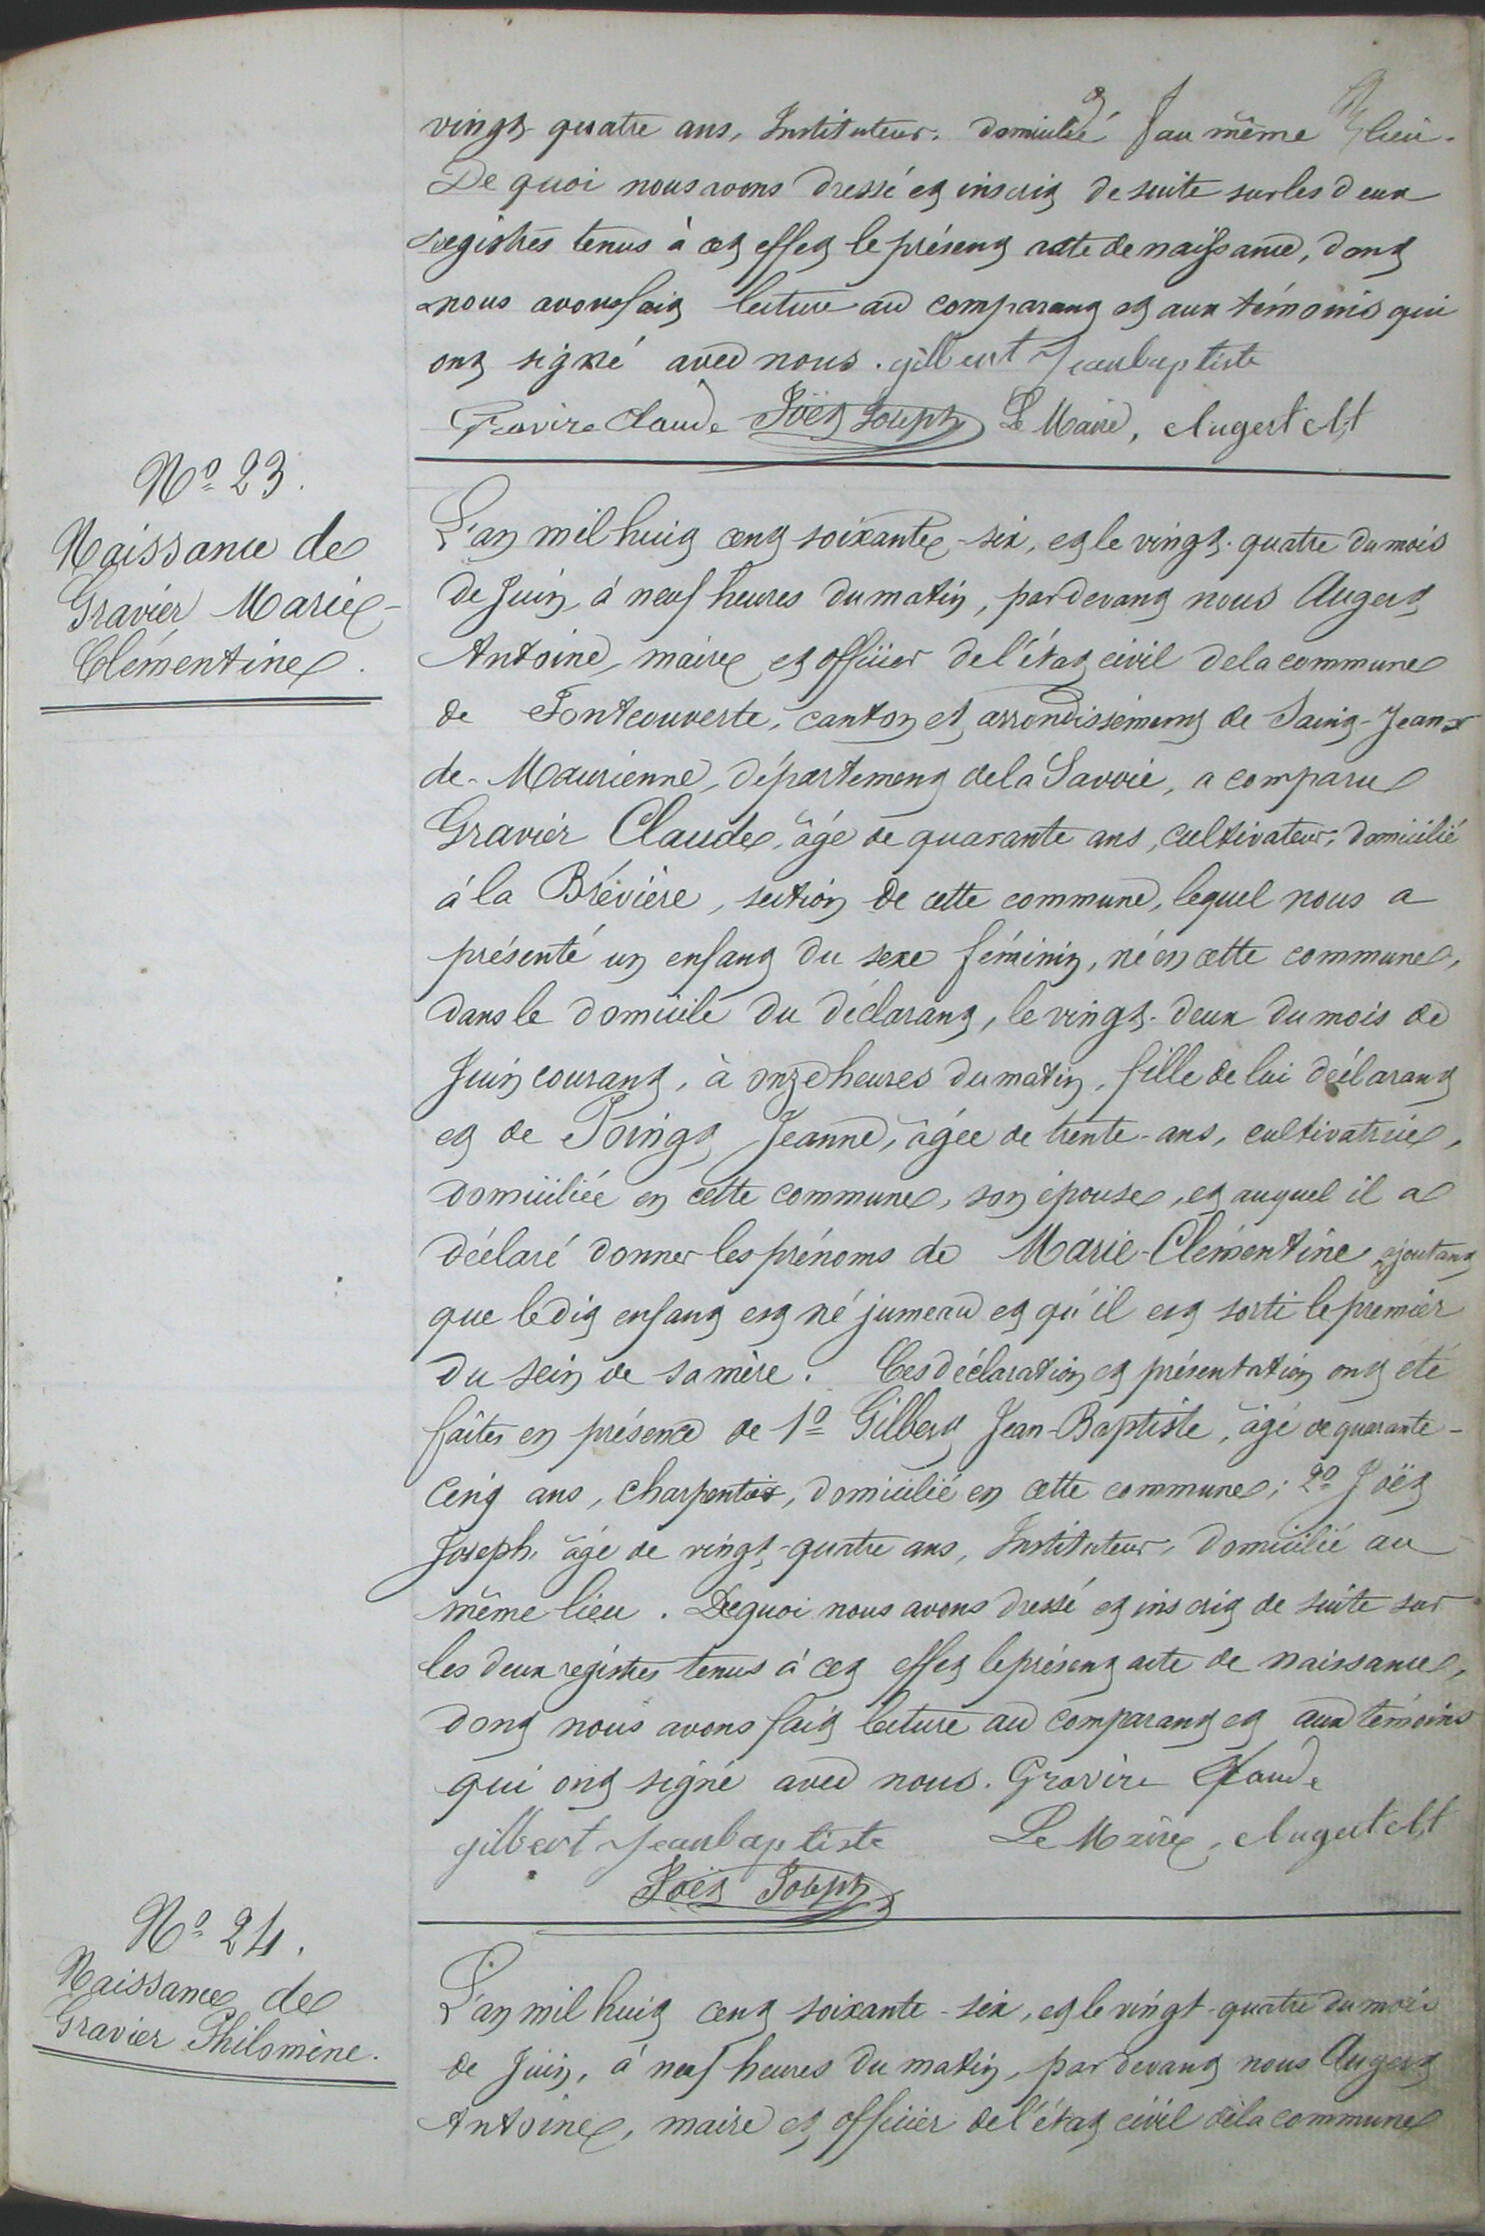 vingt-quatre ans, Instituteur, domicilié au même lieu.
De quoi nous avons dressé et inscrit de suite sur les deux
registres tenus à cet effet le présent acte de naissance, dont
nous avons fait lecture au comparant et aux témoins qui
ont signé avec nous. gilbert Jeanbaptiste
Gravire Claude Joët Joseph Le Maire, Augert At
Nº 23.
Naissance de
Gravier Marie-
Clémentine.
L'an mil huit cent soixante-six, et le vingt-quatre du mois
de Juin, à neuf heures du matin, par devant nous Augert
Antoine, maire et officier de l'état civil de la commune
de Fontcouverte, canton et arrondissement de Saint-Jean-
de-Maurienne, département de la Savoie, a comparu
Gravier Claude, âgé de quarante ans, cultivateur, domicilié
à la Brévière, section de cette commune, lequel nous a
présenté un enfant du sexe féminin, né en cette commune,
dans le domicile du déclarant, le vingt-deux du mois de
Juin courant, à onze heures du matin, fille de lui déclarant
et de Jeanne, âgée de trente-ans, cultivatrice,
domiciliée en cette commune, son épouse, et auquel il a
déclaré donner les prénoms de Marie-Clémentine, ajoutant
que ledit enfant est né jumeau et qu'il est sorti le premier
du sein de sa mère. Ces déclaration et présentation ont été
faites en présence de 1º Gilbert Jean-Baptiste, âgé de quarante-
cinq ans, charpentier, domicilié en cette commune; 2º Joët
Joseph, âgé de vingt-quatre ans, Instituteur, domicilié au
même lieu. De quoi nous avons dressé et inscrit de suite sur
les deux registres tenus à cet effet le présent acte de naissance,
dont nous avons fait lecture au comparant et aux témoins
qui ont signé avec nous. Gravire Claude
gilbert Jeanbaptiste Le Maire, Augert At
Joët Joseph
Nº 24.
Naissance de
Gravier Philomène.
L'an mil huit cent soixante-six, et le vingt-quatre du mois
de Juin, à neuf heures du matin, par devant nous Augert
Antoine, maire et officier de l'état civil de la commune